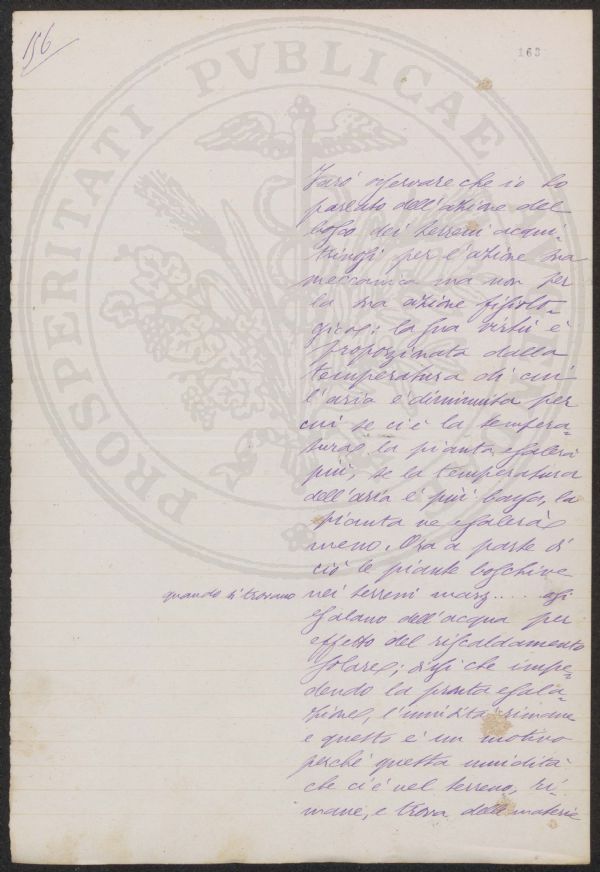 156
163
PROSPERITATI PVBLICAE
Farò osservare che io ho
parlato dell'azione del
bosco dei terreni acqui-
trinosi per l'azione sua
meccanica ma non per
la sua azione fisiolo-
gica; la sua virtù è
proporzionata dalla
temperatura di cui
l'aria è diminuita per
cui se ci è la tempera-
tura, la pianta esalerà
più, se la temperatura
dell'aria è più bassa, la
pianta ne esalerà
meno. Ora a parte di
ciò le piante boschive
quando si trovano nei terreni marz.... osi
esalano dell'acqua per
effetto del riscaldamento
solare; dissi che impe-
dendo la pronta esala-
zione, l'umidità rimane
e questo è un motivo
perché questa umidità
che ci è nel terreno, ri-
mane, e trova delle materie